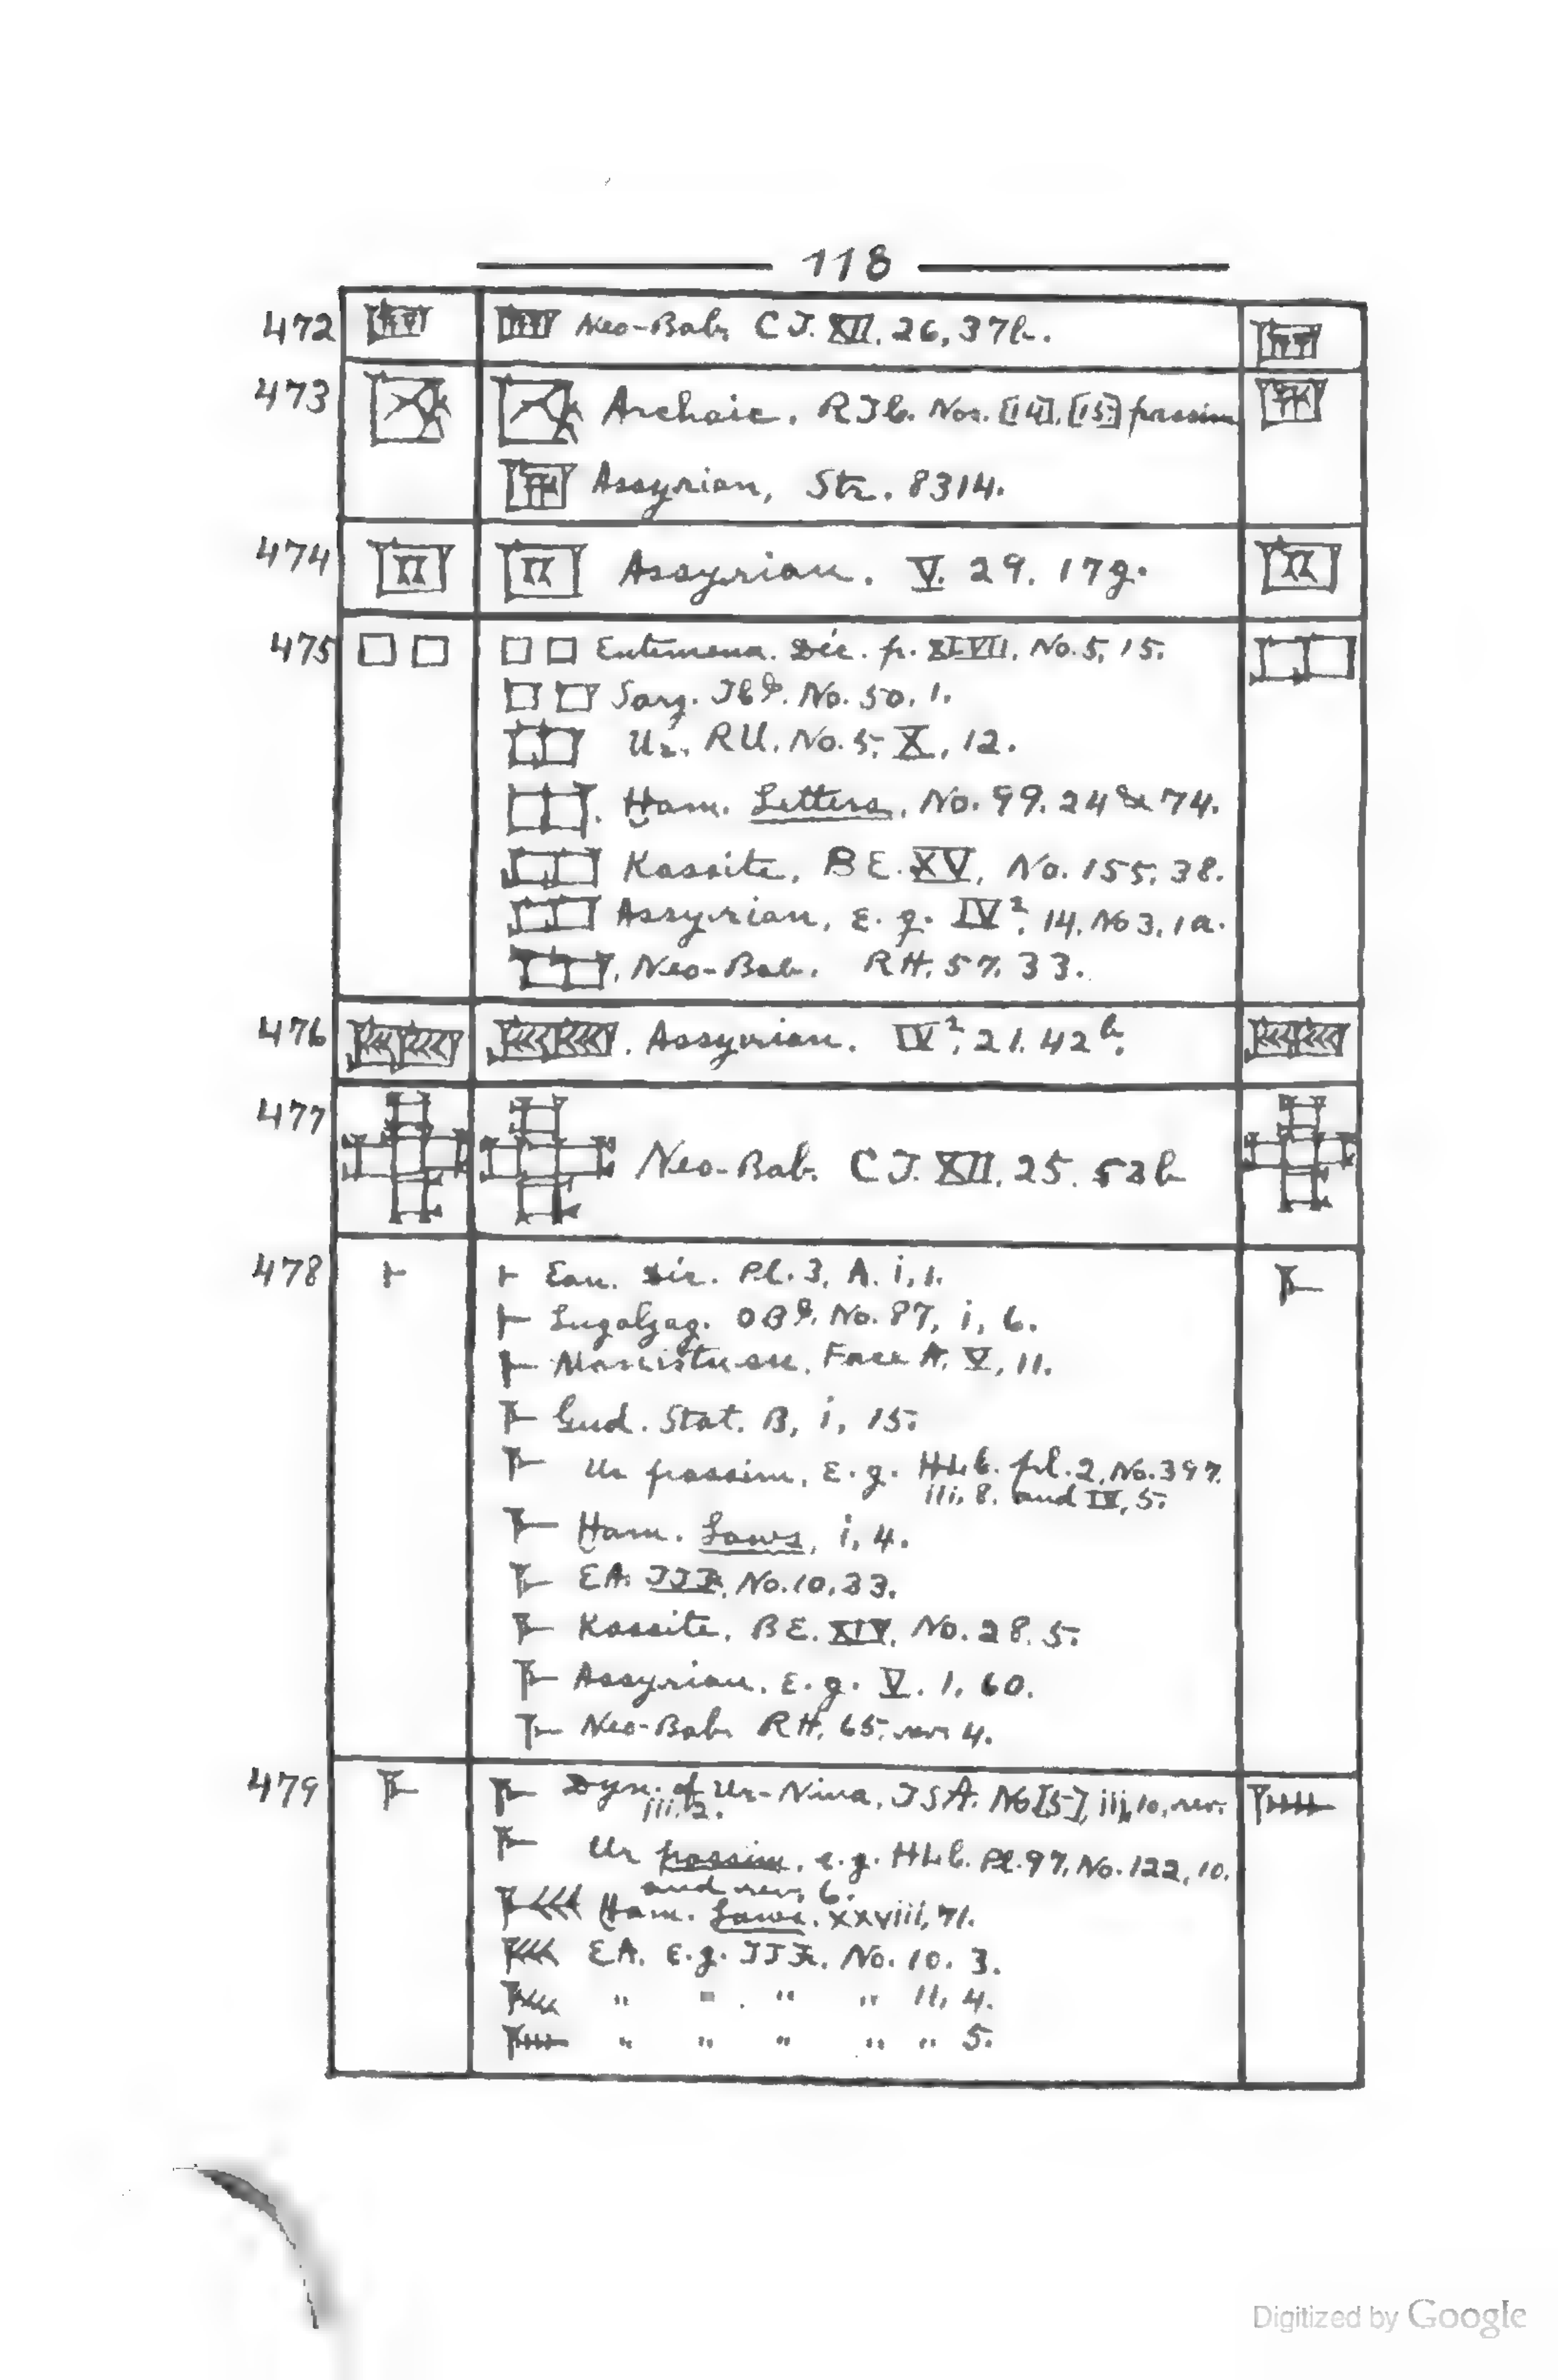 118
472 Neo-Bab. CT. XII. 26, 37b.
473 Archaic. RTC. Nos. [14], [15] passim
Assyrian, Str. 8314.
474 Assyrian. V. 29. 17g.
475 Entemena. Déc. p. XLVII. No. 5, 15.
Sarg. No. 50, 1.
Ur. RU. No. 5, X, 12.
Ḫam. Letters, No. 99. 24 & 74.
Kassite, BE. XV, No. 155, 38.
Assyrian, E. g. IV². 14. No 3, 1a.
Neo-Bab. RH. 57. 33.
476 Assyrian. IV². 21. 42b.
477 Neo-Bab. CT. XII. 25. 53b
478 Ean. Déc. Pl. 3, A. i, 1.
Lugalzag. OBI. No. 87, i, 6.
Manistusu. Face A. V, 11.
Gud. Stat. B, i, 15.
Ur passim, E. g. HLC. pl. 2, No. 397.
iii, 8. and IV, 5.
Ḫam. Laws, i, 4.
EA. No. 10, 33.
Kassite, BE. XIV, No. 28, 5.
Assyrian. E. g. V. 1, 60.
Neo-Bab. RH. 65, rev. 4.
479 Dyn. of Ur-Nina, TSA. No [5], iii, 10, rev.
iii. 2.
Ur passim, e. g. HLC. Pl. 97, No. 122, 10.
and rev. 6.
Ḫam. Laws. xxviii, 71.
EA. E. g. No. 10. 3.
" " . " " 11, 4.
" " " " " 5.
Digitized by Google